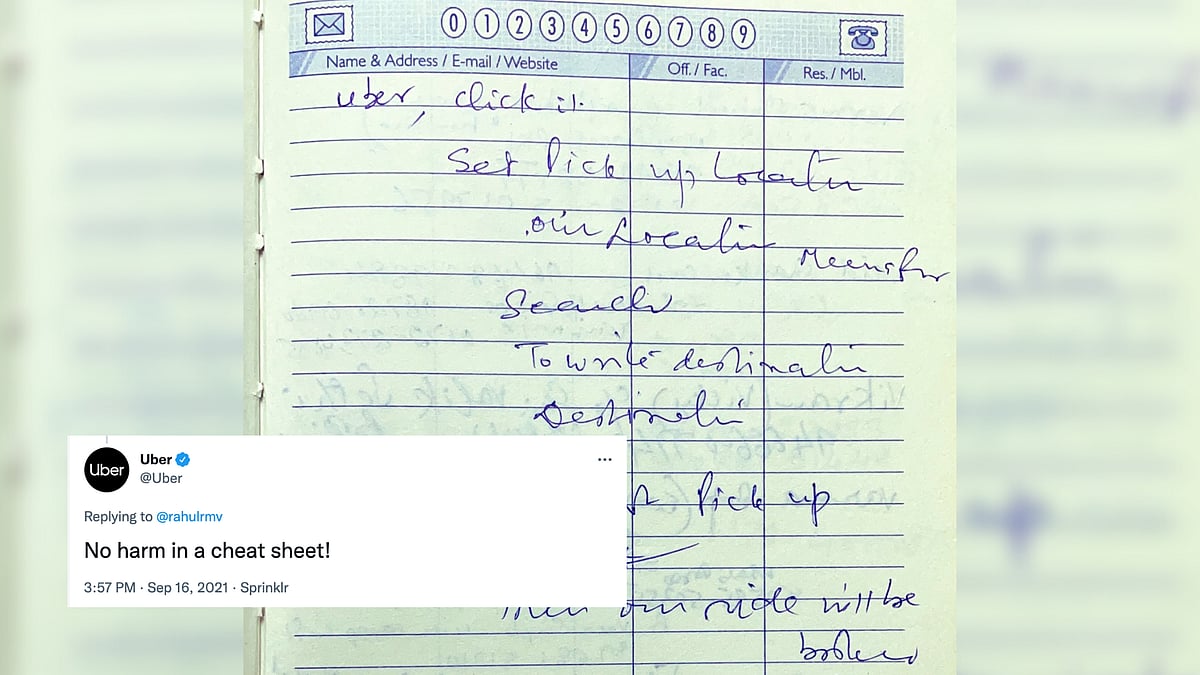 0 1 2 3 4 5 6 7 8 9
Name & Address / E-mail / Website Off. / Fac. Res. / Mbl.
uber, click it.
Set Pick up Locatin
our Locatin
Search
To write destinatin
Destinatin
Pick up
Then our ride will be
booked
Uber
Uber
@Uber
Replying to @rahulrmv
No harm in a cheat sheet!
3:57 PM · Sep 16, 2021 · Sprinklr